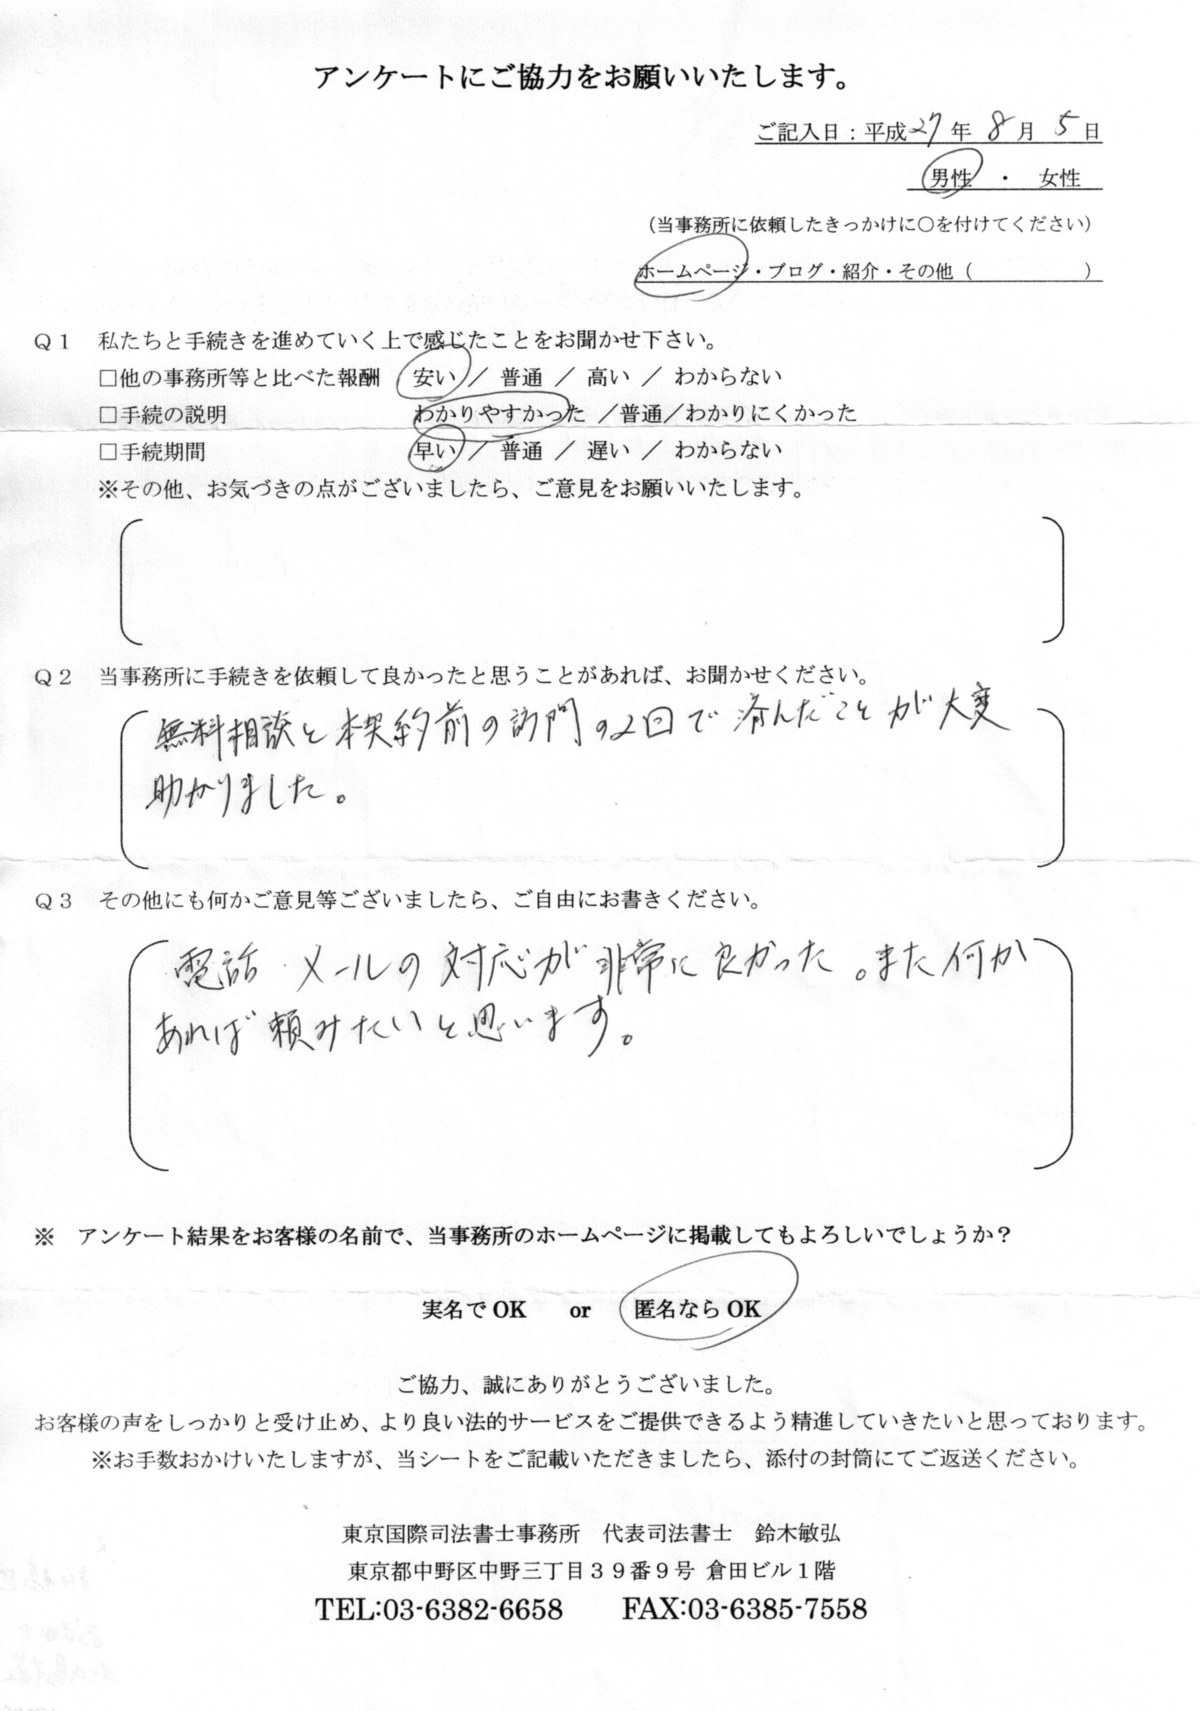 アンケートにご協力をお願いいたします。
ご記入日：平成27年 8月 5日
男性 ・ 女性
（当事務所に依頼したきっかけに○を付けてください）
ホームページ・ブログ・紹介・その他（ ）
Q1 私たちと手続きを進めていく上で感じたことをお聞かせ下さい。
□他の事務所等と比べた報酬 安い ／ 普通 ／ 高い ／ わからない
□手続の説明 わかりやすかった ／普通／わかりにくかった
□手続期間 早い ／ 普通 ／ 遅い ／ わからない
※その他、お気づきの点がございましたら、ご意見をお願いいたします。
Q2 当事務所に手続きを依頼して良かったと思うことがあれば、お聞かせください。
無料相談と本契約前の訪問の2回で済んだことが大変
助かりました。
Q3 その他にも何かご意見等ございましたら、ご自由にお書きください。
電話・メールの対応が非常に良かった。また何か
あれば頼みたいと思います。
※ アンケート結果をお客様の名前で、当事務所のホームページに掲載してもよろしいでしょうか？
実名でOK or 匿名ならOK
ご協力、誠にありがとうございました。
お客様の声をしっかりと受け止め、より良い法的サービスをご提供できるよう精進していきたいと思っております。
※お手数おかけいたしますが、当シートをご記載いただきましたら、添付の封筒にてご返送ください。
東京国際司法書士事務所 代表司法書士 鈴木敏弘
東京都中野区中野三丁目39番9号 倉田ビル1階
TEL:03-6382-6658 FAX:03-6385-7558